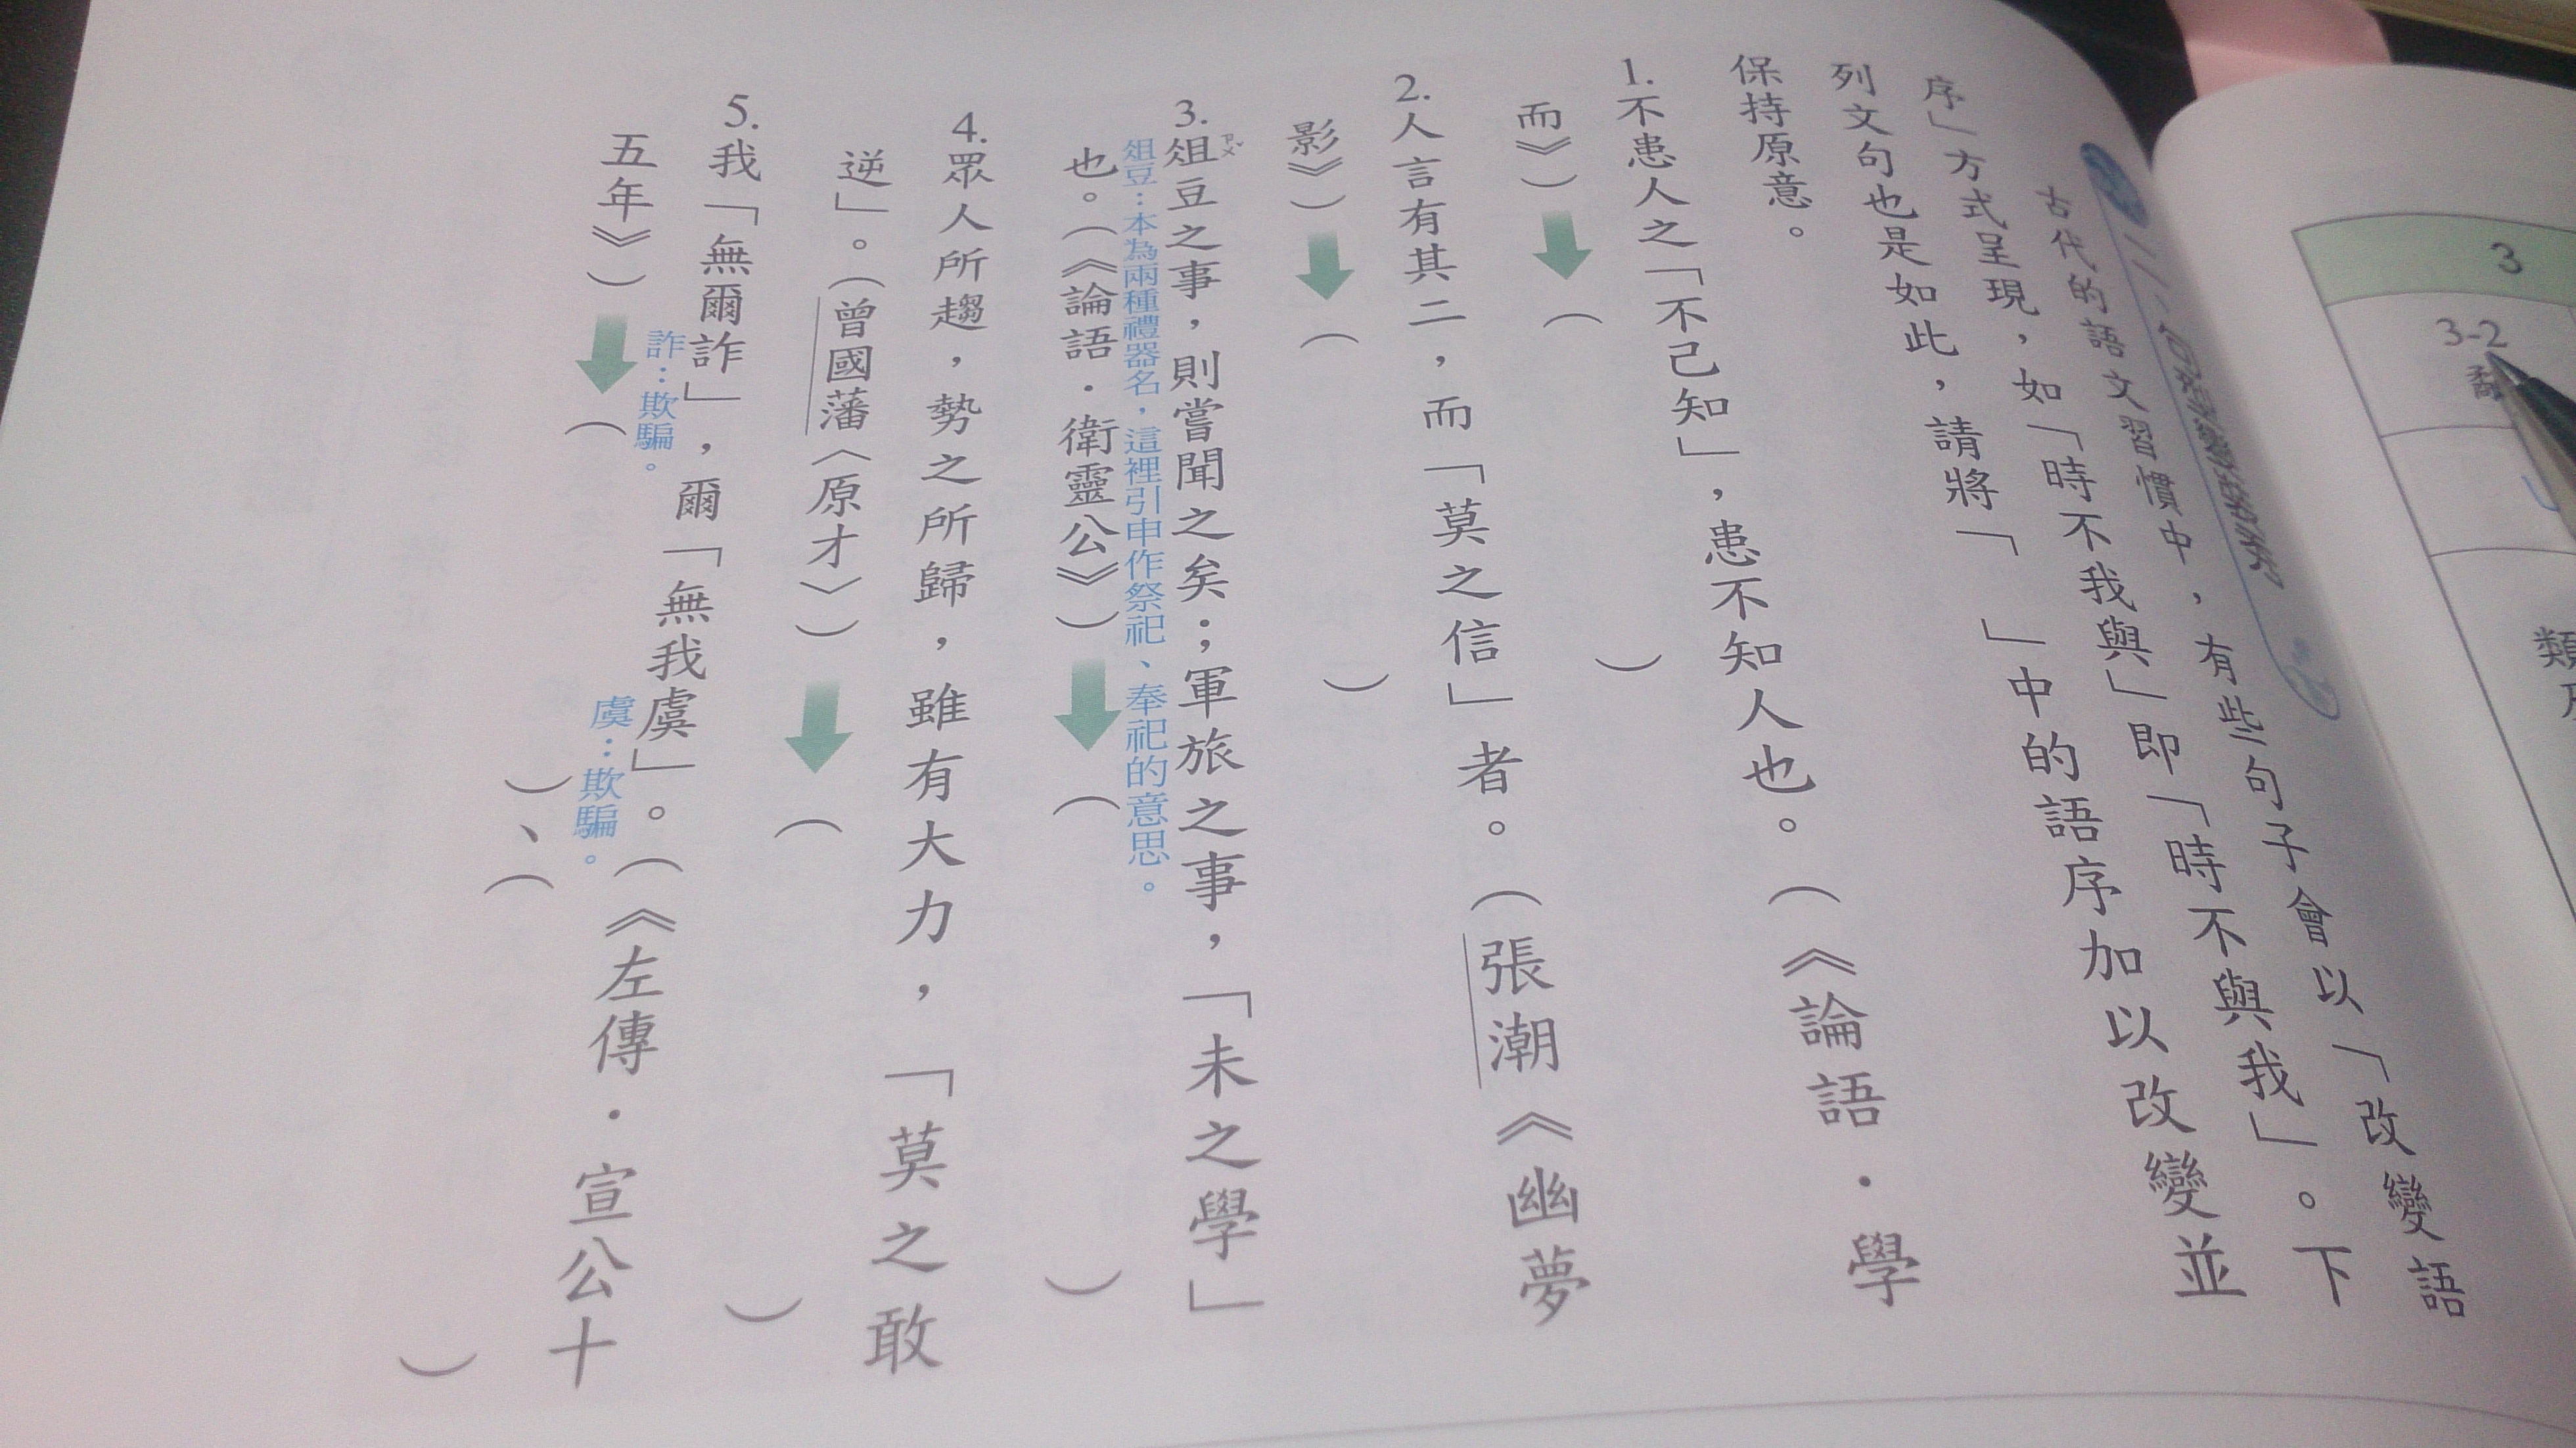 古代的語文習慣中，有些句子會以「改變語
序」方式呈現，如「時不我與」即「時不與我」。下
列文句也是如此，請將「　」中的語序加以改變並
保持原意。
1.不患人之「不己知」，患不知人也。（《論語．學
而》）（　）
2.人言有其二，而「莫之信」者。（張潮《幽夢
影》）（　）
3.俎豆之事，則嘗聞之矣；軍旅之事，「未之學」
ㄗㄨˇ
俎豆：本為兩種禮器名，這裡引申作祭祀、奉祀的意思。
也。（《論語．衛靈公》）（　）
4.眾人所趨，勢之所歸，雖有大力，「莫之敢
逆」。（曾國藩〈原才〉）（　）
5.我「無爾詐」，爾「無我虞」。（《左傳．宣公十
詐：欺騙。
虞：欺騙。
五年》）（　）、（　）
3
3-2